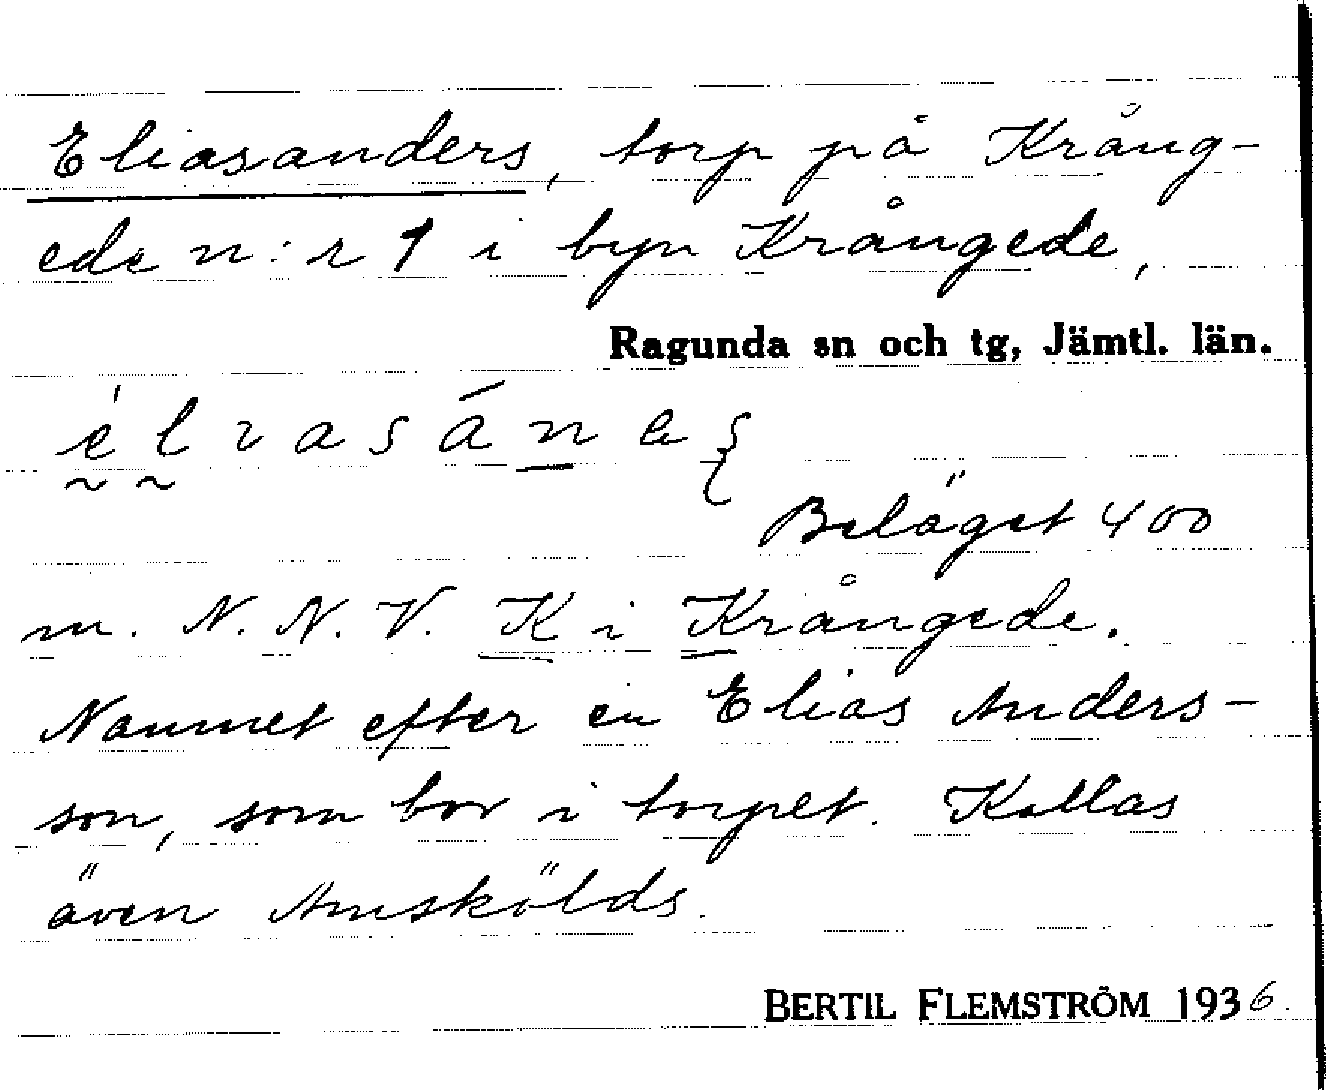 Eliasanders, torp på Kräng-
ede n:r 1 i byn Krångede,
Ragunda sn och tg, Jämtl. län.
Beläget 400
m. N. N. V. K i Krångede.
Namnet efter en Elias Anders-
son, som bor i torpet. Kallas
även Amskölds.
BERTIL FLEMSTRÖM 1936.